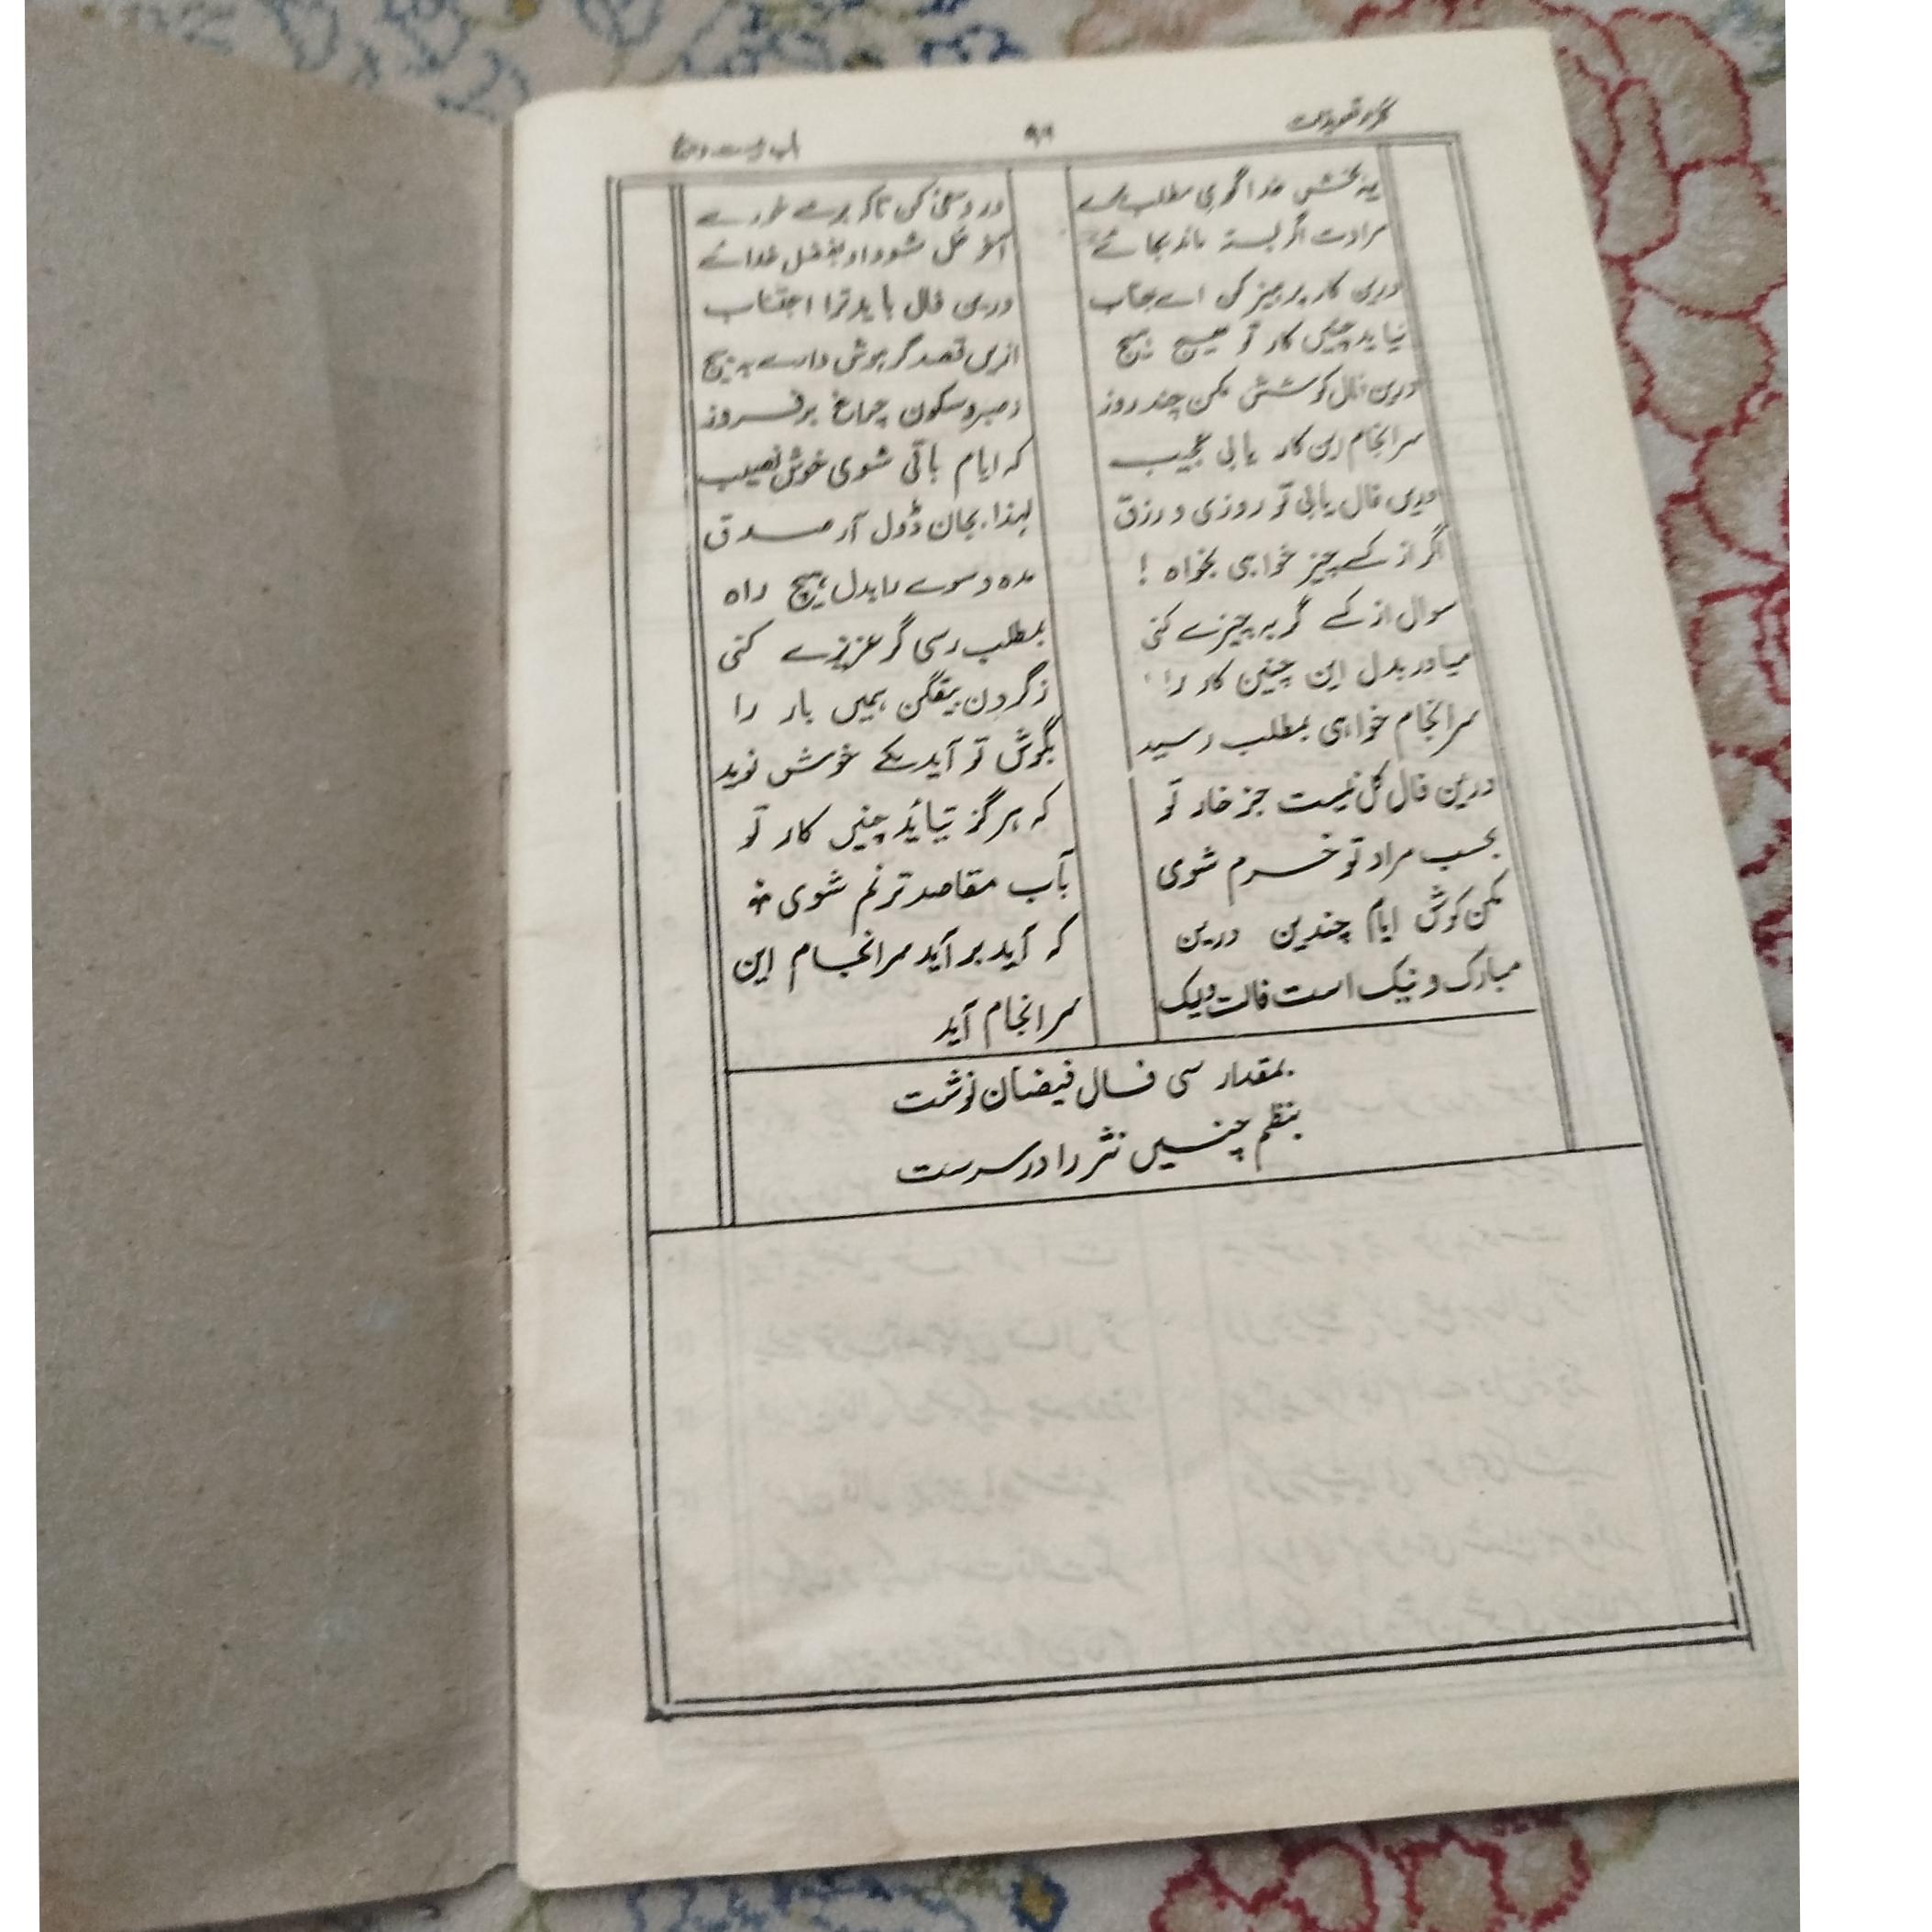 باب بیست و
۹۹
یہ بخشش خدا گوہی مطلب
مرادت اگر بستہ ماند بجائے آخر حل شود و از بفضل خدائے
درین کار پرہیز کن اے جناب درین فال باید ترا اجتناب
نیاید چنیں کار تو ہیچ ہیچ ازیں قصد گر ہوش دارے بہ پیچ
درین فال کوشش مکن چند روز ز صبر و سکون چراغ بر فروز
سر انجام این کار یابی عجیب کہ ایام باقی شوی خوش نصیب
دریں فال یابی تو روزی و رزق لہذا بجان و دل آر صدق
اگر از کسے چیز خواہی بخواہ ! مدہ وسوسے را بدل ہیچ راہ
سوال از کسے گر بہ چیزے کنی بمطلب رسی گر عزیزے کنی
میاور بدل این چنین کار را زگردن بیفگن ہمیں بار را
سر انجام خواہی بمطلب رسید بگوش تو آید یکے خوش نوید
درین فال گل نیست جز خار تو کہ ہرگز نیائد چنیں کار تو
بحسب مراد تو خرم شوی بآب مقاصد تر نم شوی
مکن کوش ایام چندین درین کہ آید بر آید سر انجام این
مبارک و نیک است فالت ولیک سر انجام آید
بمقدار سی فال فیضان نوشت
بنظم چنیں نثر را در سرشت